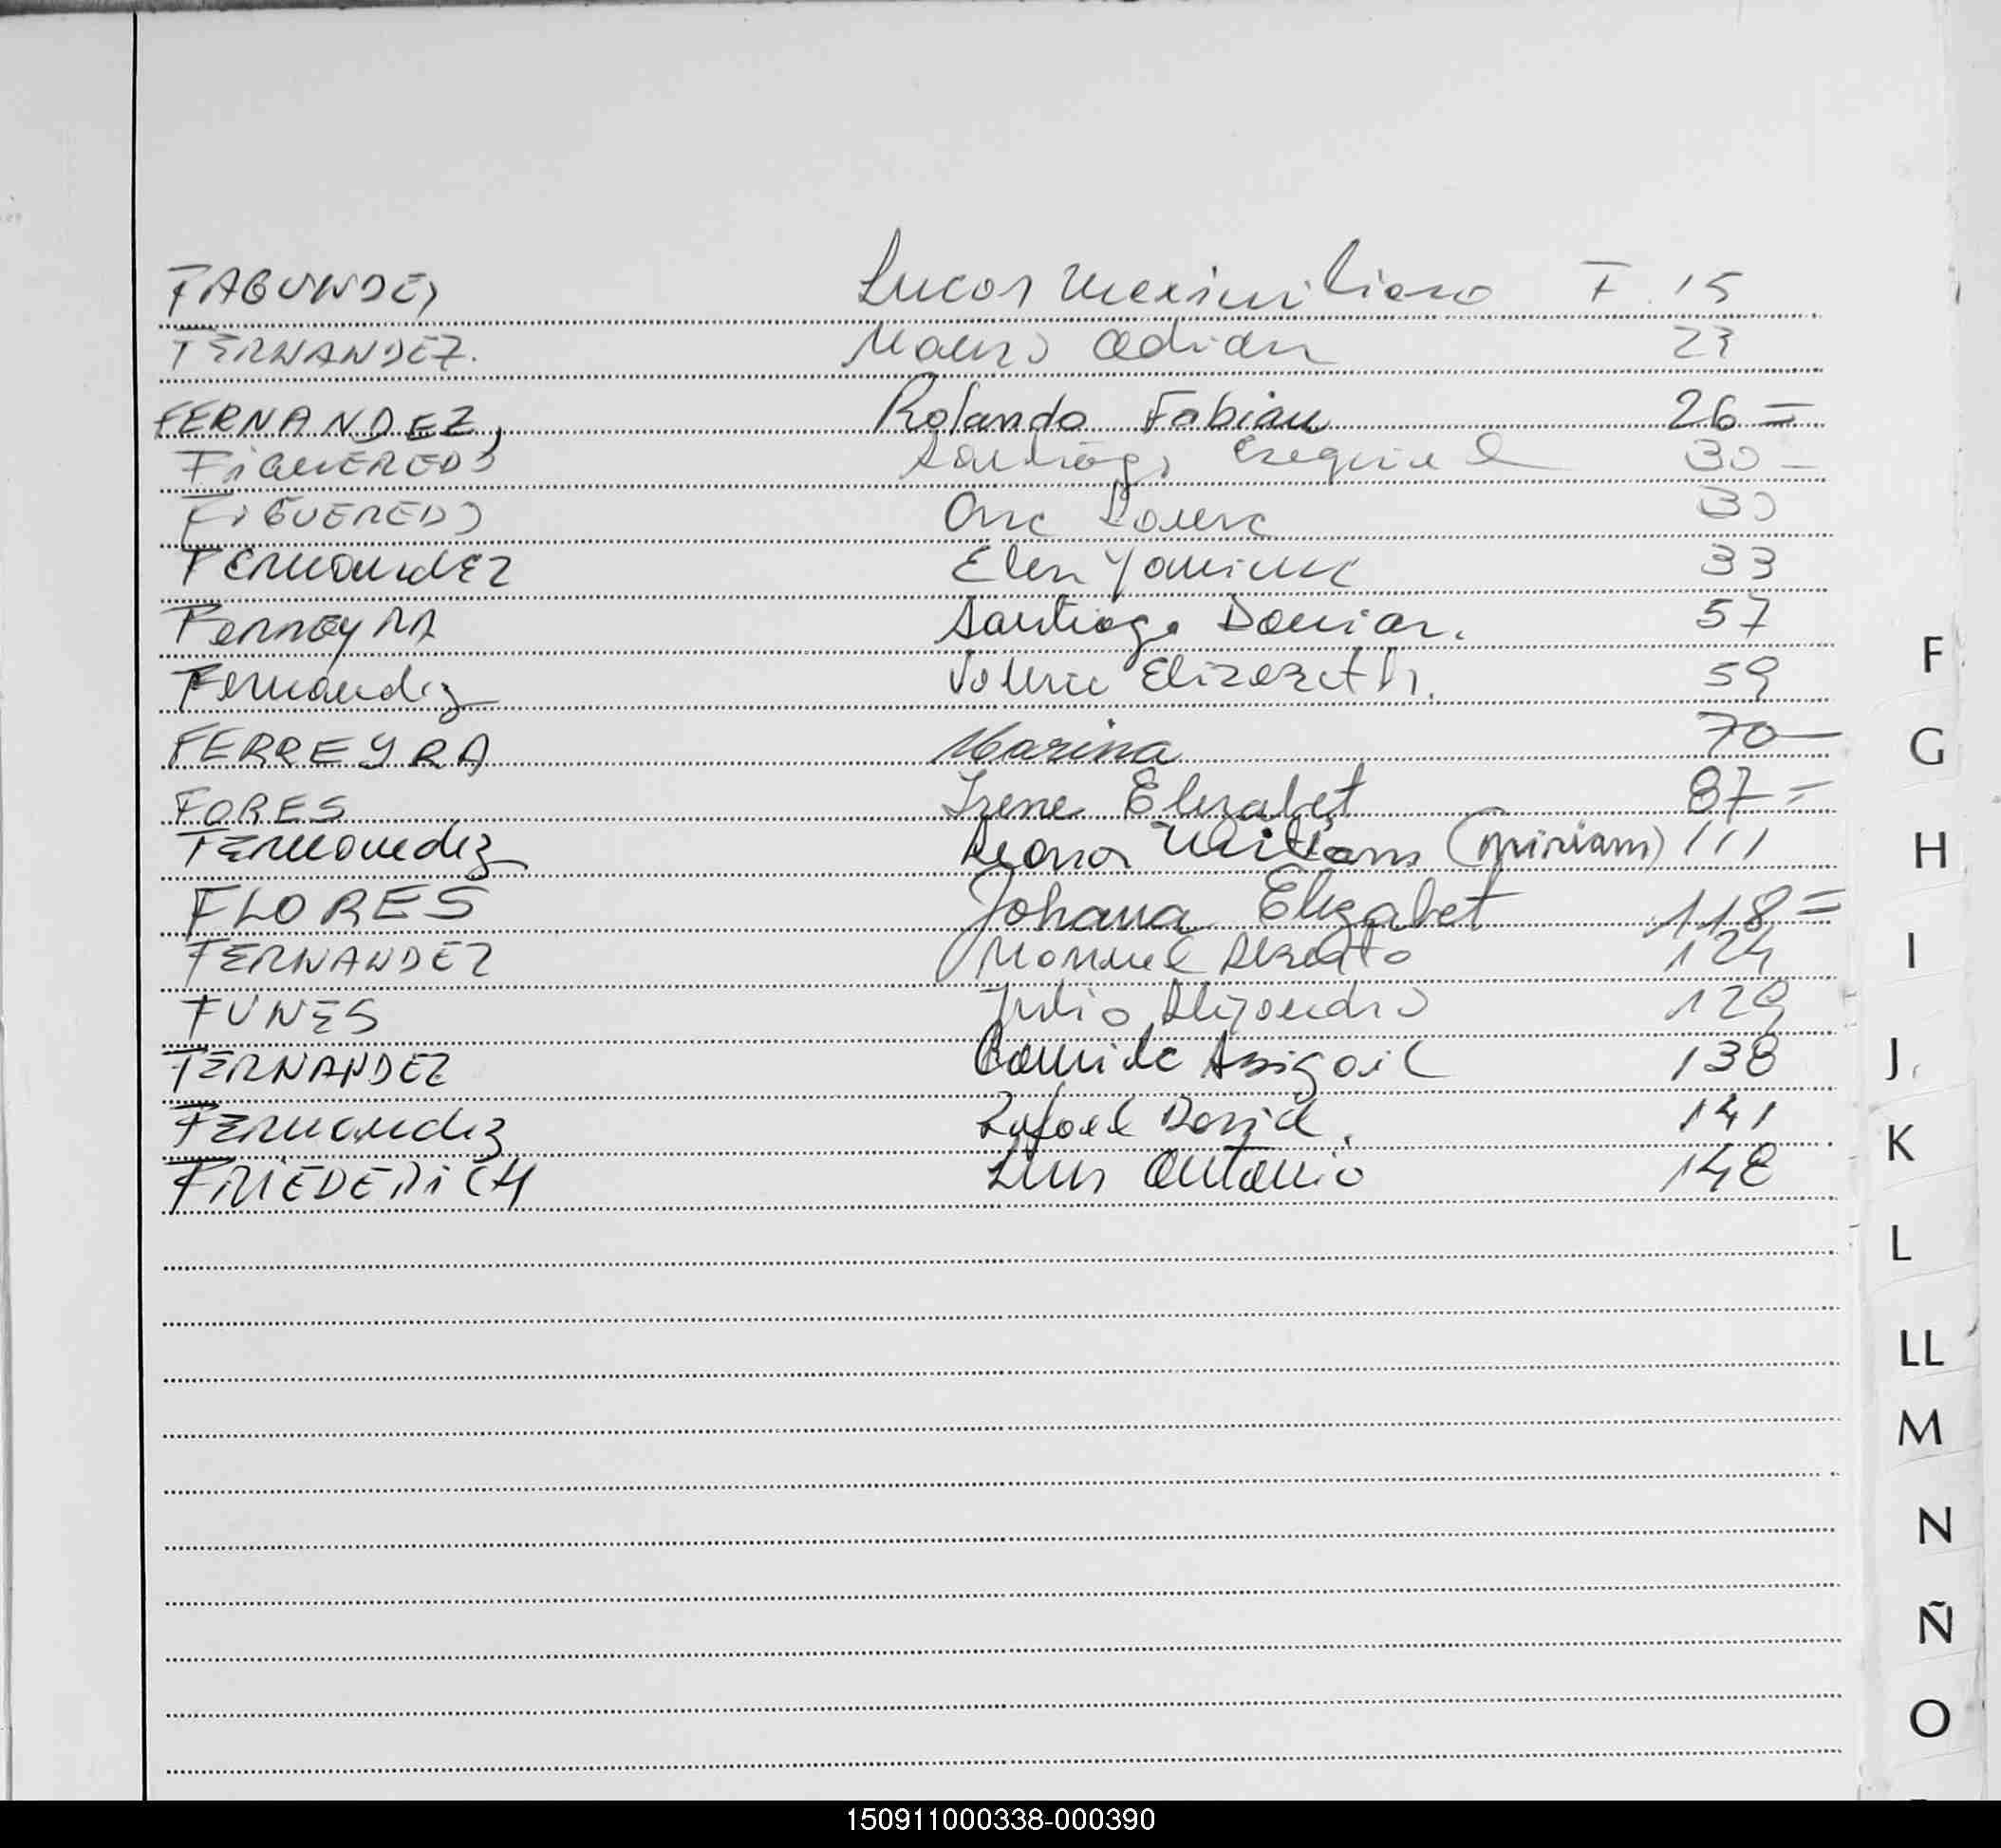 FAGUNDES Lucas Maximiliano F. 15
FERNANDEZ. Mauro Adrian 23
FERNANDEZ, Rolando Fabian 26 =
FIGUEREDO Santiago Ezequiel 30 -
FIGUEREDO Ana Laura 30
FERNANDEZ Elen Yanina 33
FERREYRA Santiago Damian. 57
Fernandez Valeria Elizabeth. 59
FERREYRA Marina 70 -
FORES Irene Elizabet 87 =
FERNANDEZ (Miriam) 111
FLORES Johana Elizabet 118 =
FERNANDEZ Manuel Alberto 124
FUNES Julio Alejandro 129
FERNANDEZ Camila Abigail 138
FERNANDEZ Rafael David. 141
FRIEDERICH Luis Antonio 148
F
G
H
I
J
K
L
LL
M
N
Ñ
O
150911000338-000390